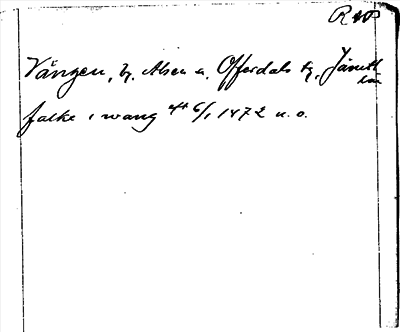 Vången, by. Alsen o. Offerdals sg, Jämtl
län
falke i wang 6/1 1472 n. o.